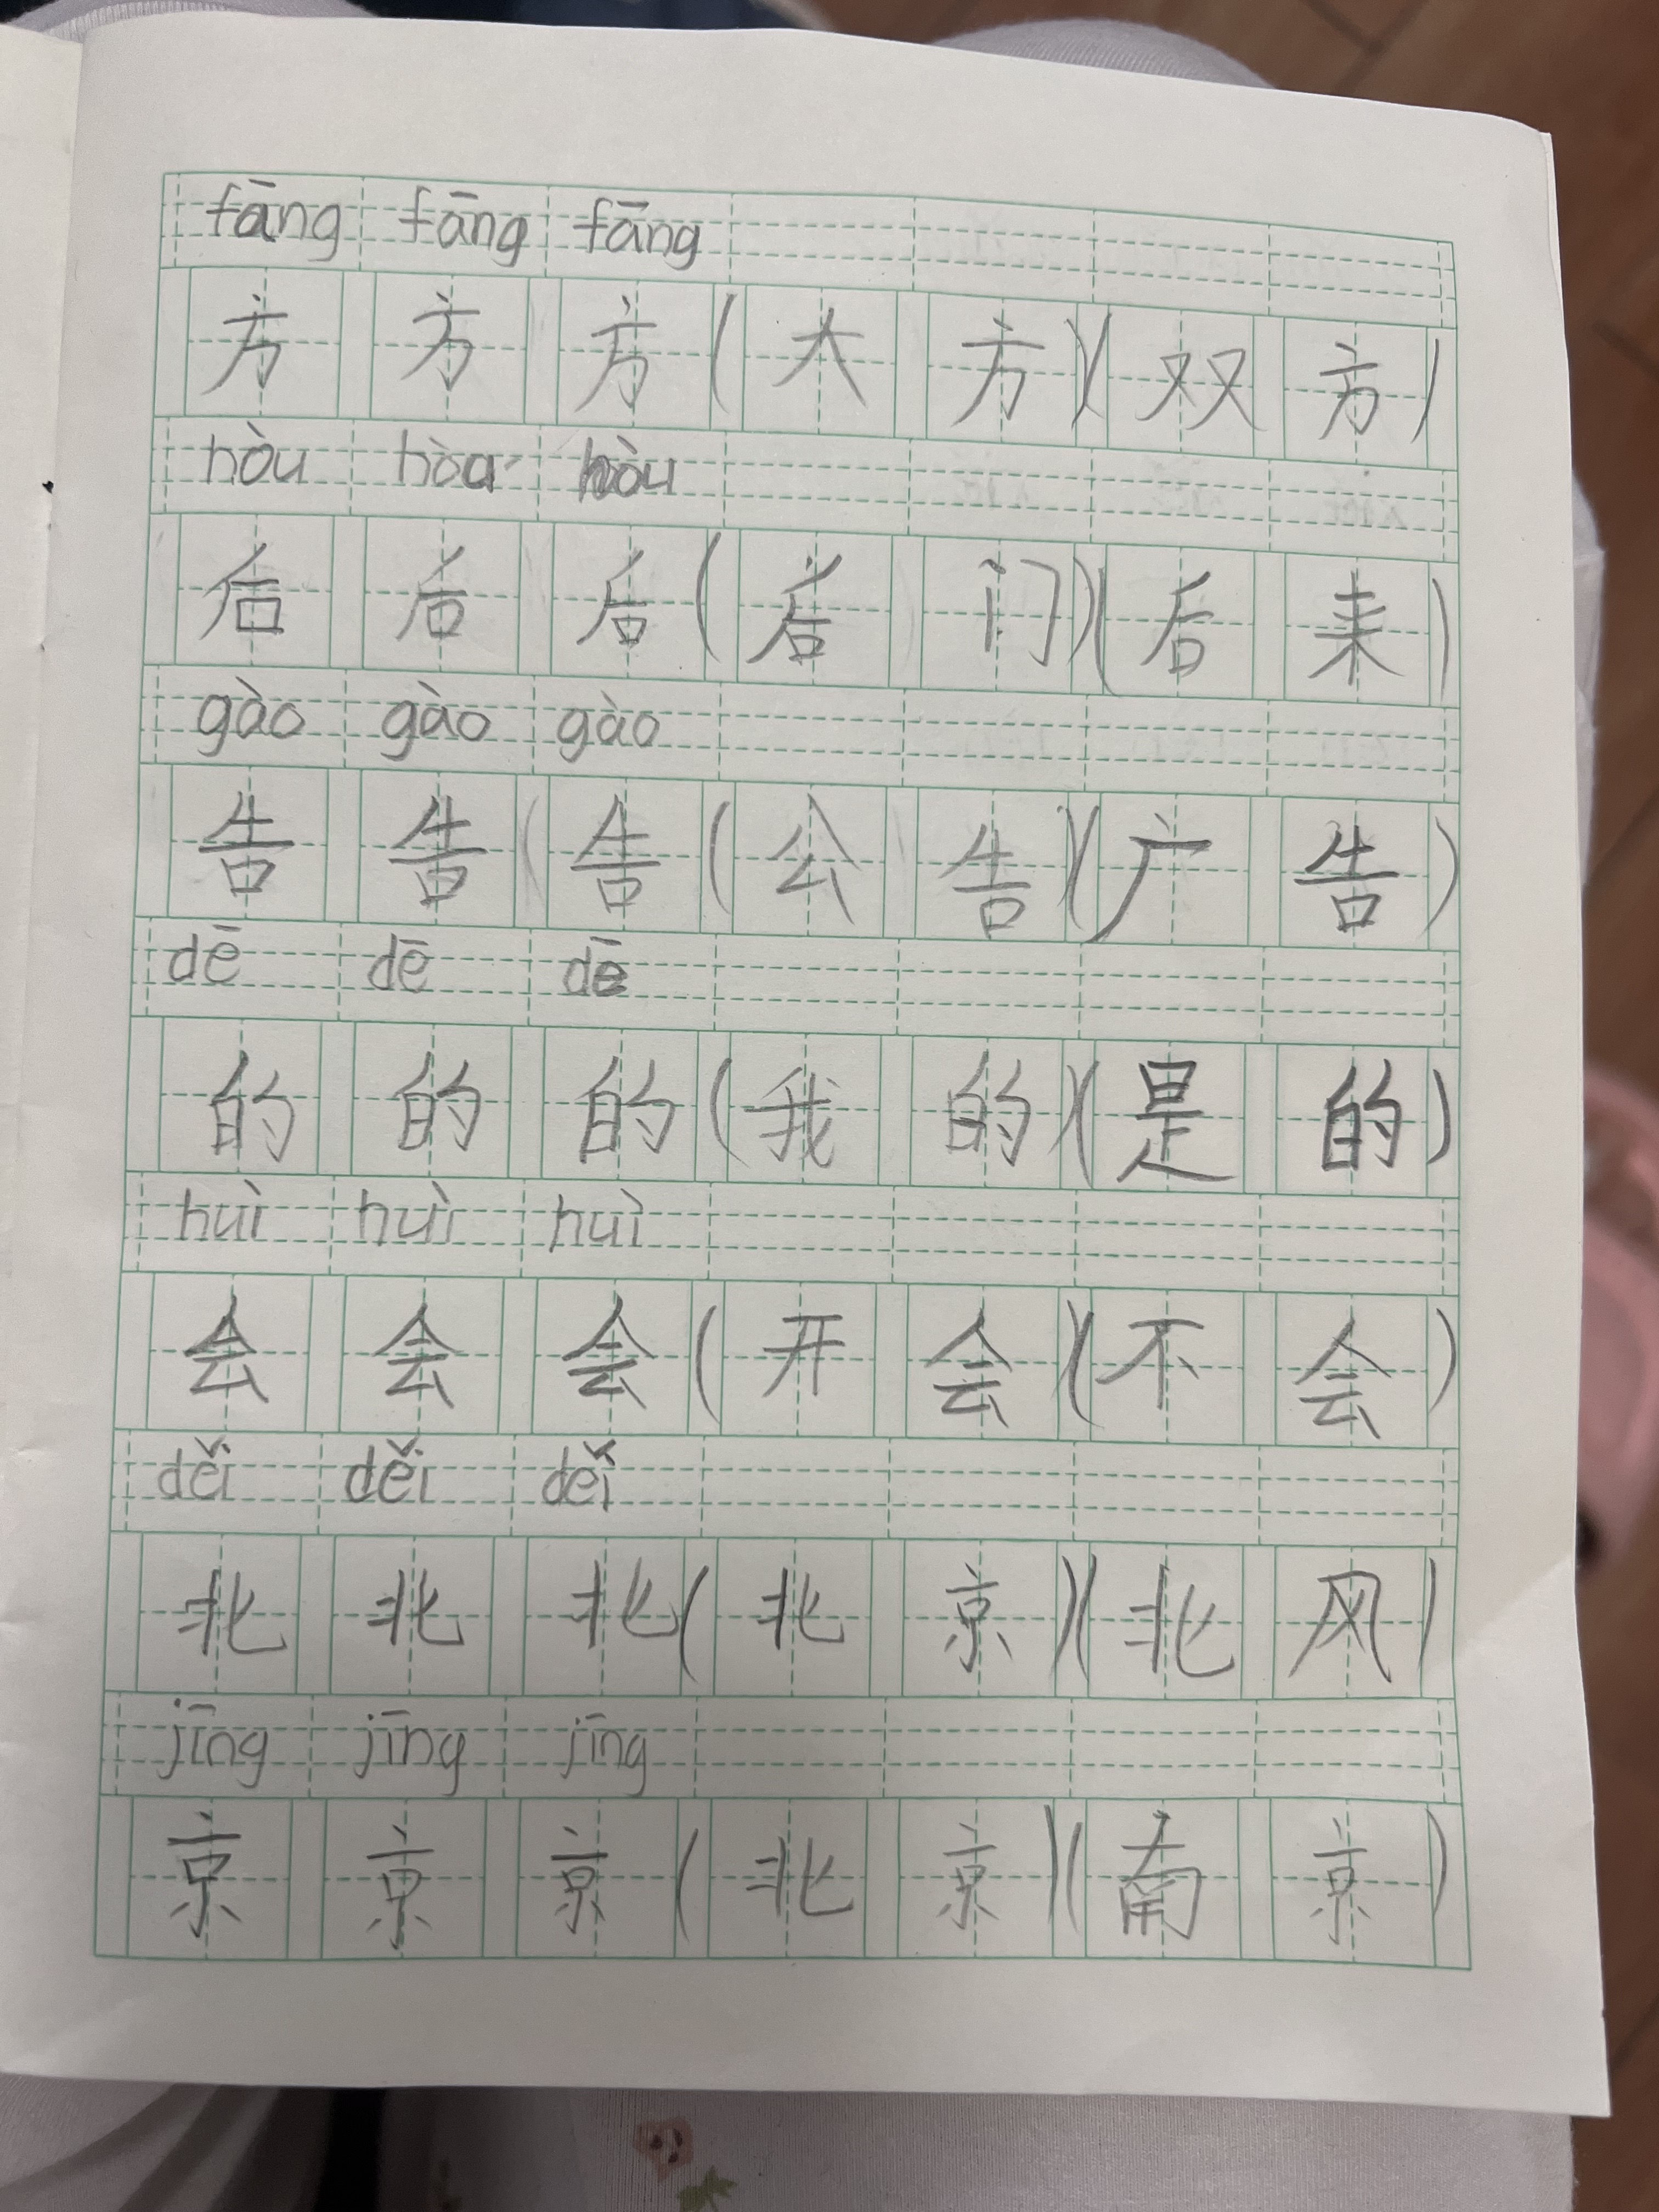 fāng fāng fāng
方 方 方 ( 大 方 ) ( 双 方 )
hòu hòu hòu
后 后 后 ( 后 门 ) ( 后 来 )
gào gào gào
告 告 告 ( 公 告 ) ( 广 告 )
dē dē dē
的 的 的 ( 我 的 ) ( 是 的 )
huì huì huì
会 会 会 ( 开 会 ( 不 会 )
děi děi děi
北 北 北 ( 北 京 ) ( 北 风 )
jīng jīng jīng
京 京 京 ( 北 京 ) ( 南 京 )